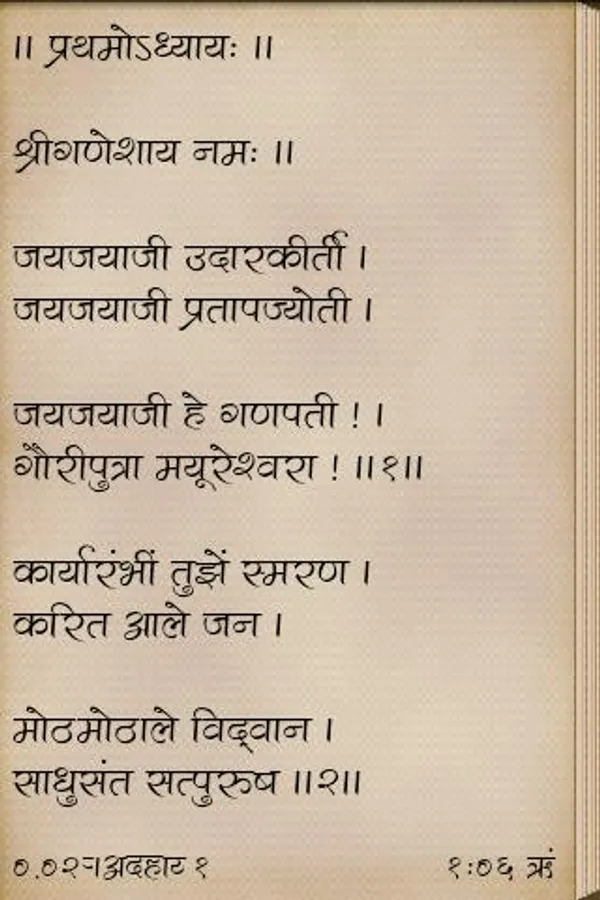 ।। प्रथमोऽध्यायः ।।
श्रीगणेशाय नमः ।।
जयजयाजी उदारकीर्ती ।
जयजयाजी प्रतापज्योती ।
जयजयाजी हे गणपती ! ।
गौरीपुत्रा मयूरेश्वरा ! ।।१।।
कार्यारंभीं तुझें स्मरण ।
करित आले जन ।
मोठमोठाले विद्‌वान ।
साधुसंत सत्पुरुष ।।२।।
१
१:०६